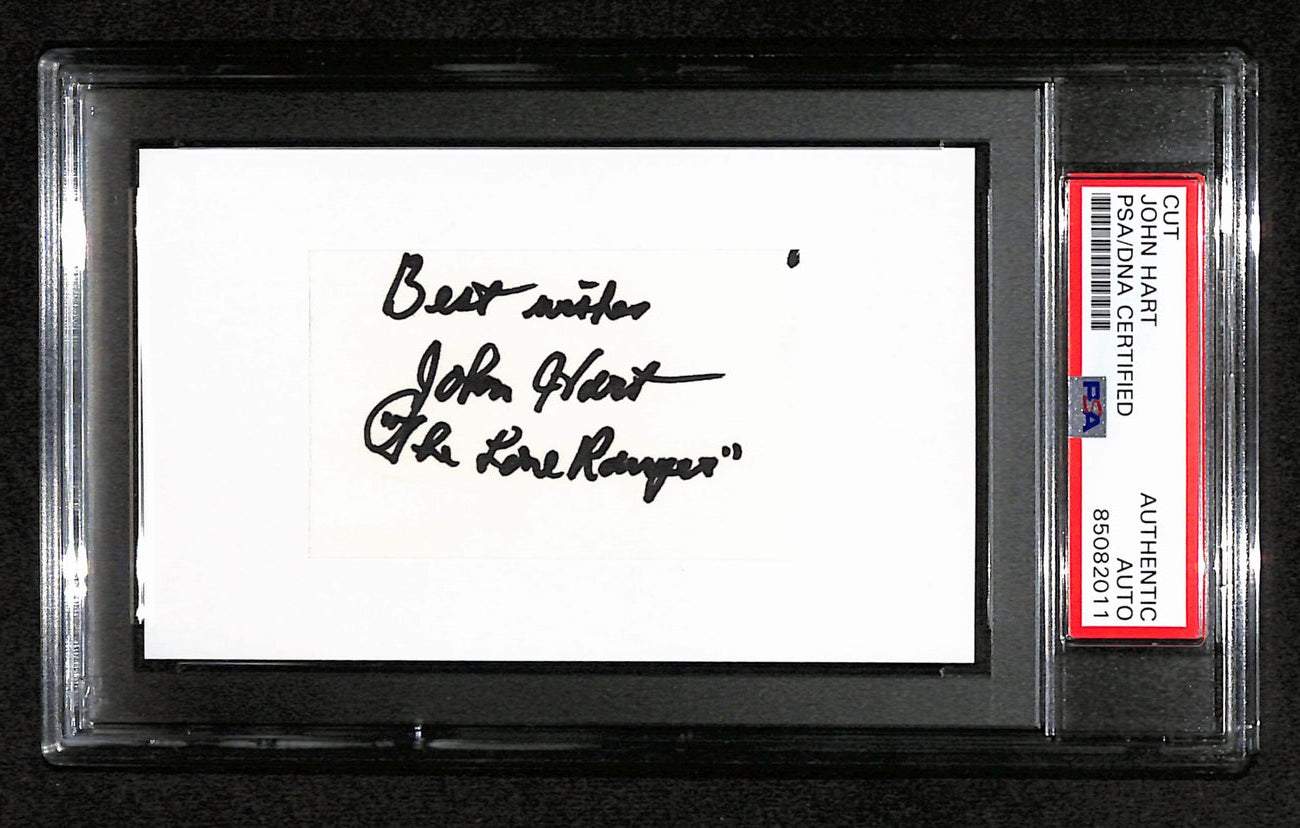 Best wishes
John Hart
"The Lone Ranger"
CUT
JOHN HART
PSA/DNA CERTIFIED
PSA
AUTHENTIC
AUTO
85082011